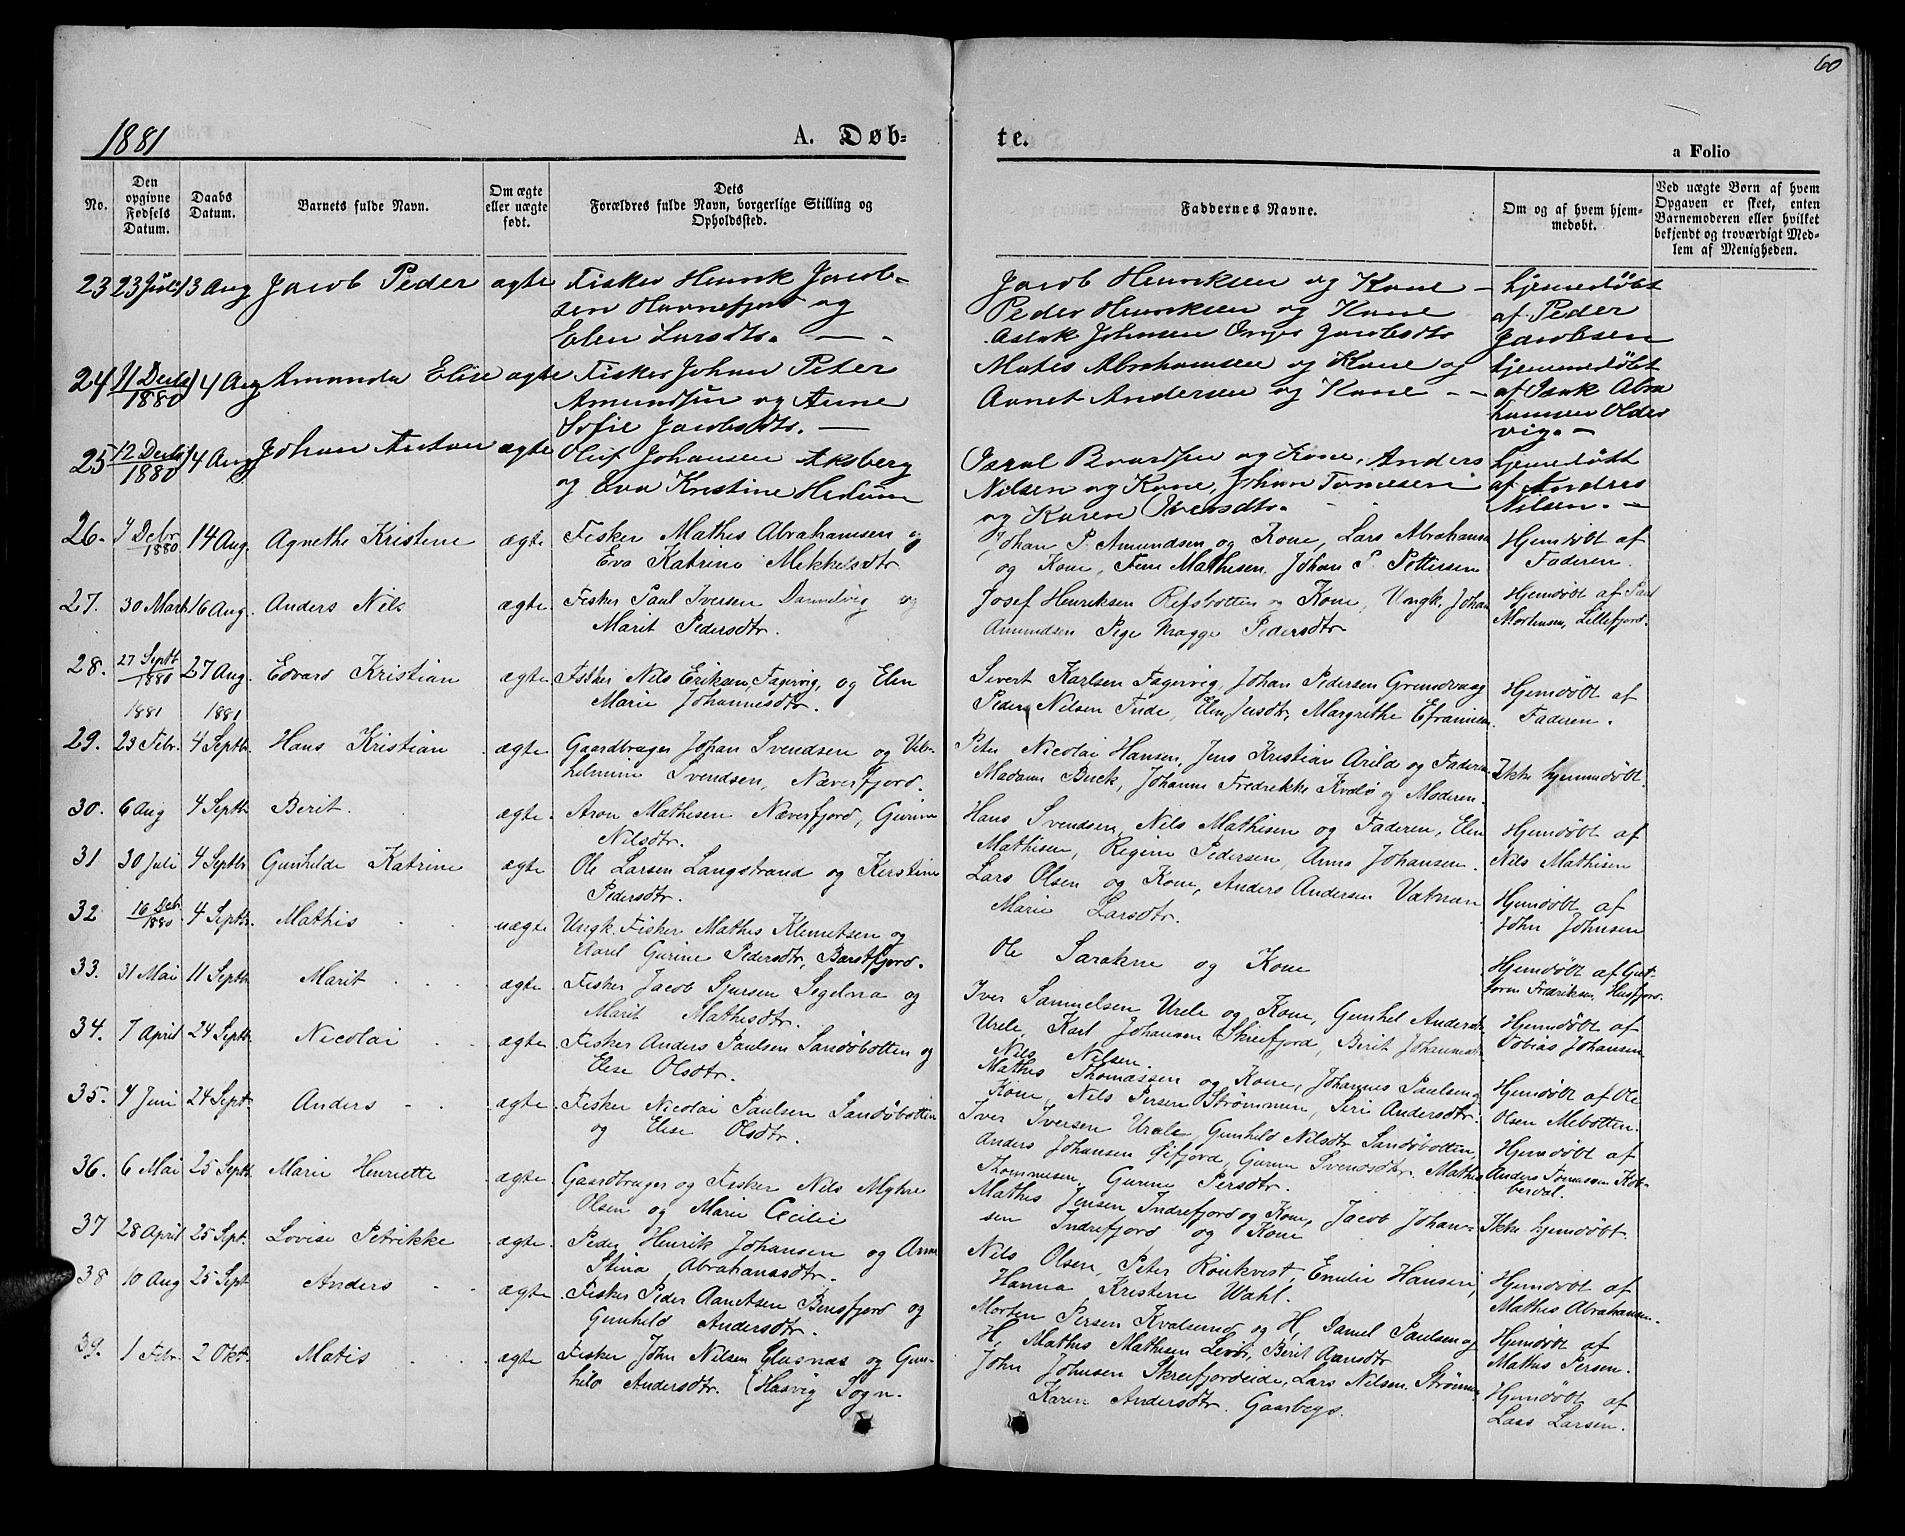 60
1881 A. Døb-
te.
a Folio
No. Den opgivne Fødsels Datum. Daabs Datum. Barnets fulde Navn. Om ægte eller uægte født. Dets Forældres fulde Navn, borgerlige Stilling og Opholdssted.
Faddernes Navne. Om og af hvem hjemmedøbt. Ved uægte Børn af hvem Opgaven er skeet, enten Barnemoderen eller hvilket bekjendt og troværdigt Medlem af Menigheden.
23 23 Juli 13 Aug Jacob Peder ægte Fisker Henrik Jacob-
sen Havnefjord og
Elen Larsdtr.
Jacob Henriksen og Kone
Peder Henriksen og Kone
Aslak Johnsen Jacobsdtr
hjemedøbt
af Peder
Jacobsen
24 11 Decbr 1880 14 Aug Amanda Elise ægte Fisker Johan Peter
Amundsen og Anne
Sofie Jacobsdtr.
Mates Abrahamsen og Kone og
Aanet Andersen og Kone
hjemmedøbt
af Isak Abra
hamsen Older
vig.
25 12 Decbr 1880 14 Aug Johan Anton ægte Oluf Johansen Aksberg
og Eva Kristine
Baardsen og Kone, Anders
Nilsen og Kone, Johan Tomesen
og Karen Iversdtr.
hjemedøbt
af Andres
Nilsen.
26. 7 Debr 1880 14 Aug. Agnethe Kristene ægte Fisker Mathis Abrahamsen og
Eva Katrine Mikkelsdtr
Johan P. Amundsen og Kone, Lars Abrahams
og Kone, Mathisen, Johan P. Pettersen
Hjemdøbt af
Faderen.
27. 30 Marts 16 Aug. Anders Nils ægte Fisker Paul Iversen og
Marit Pedersdtr.
Josef Henriksen Refsbotten og Kone, Ungk. Johan
Amundsen Pige Magge Pedersdtr
Hjemdøbt af Paul
Mortensen, Lillefjord.
28. 27 Septb 1880 27 Aug. Edvard Kristian ægte. Fisker Nils Eriksen, Fagervig, og Elen
Marie Johannesdtr.
Sivert Karlsen Fagervig, Johan Pedersen Grundvaag
Peder Nilsen Elen Jensdtr, Margrethe
Hjemdøbt af
Faderen.
1881 1881
29. 23 Febr. 4 Septbr. Hans Kristian ægte. Gaardbruger Johan Svendsen og Vil-
helmine Svendsen, Næverfjord.
Peter Nicolai Hansen, Jens Kristian Arild og Faderen.
Madam Buck, Johanne Fredrikke Kvalø og Moderen.
Ikke hjemmdøbt.
30. 6 Aug 4 Septb Berit ægte. Aron Mathisen Næverfjord, Gurine
Nilsdtr.
Hans Svendsen, Nils Mathisen og Faderen, Elen
Mathisen, Regine Pedersen, Anna Johansen.
Hjemdøbt af
Nils Mathisen
31 30 Juli 4 Septb Gunhilde Katrine ægte Ole Larsen Langstrand og Kerstine
Pedersdtr.
Lars Olsen og Kone, Anders Andersen Vatnan
Marie Larsdtr.
Hjemdøbt af
John Johnsen
32 16 Debr 1880 4 Septb. Mathis uægte Ungk. Fisker Mathis Klemetsen og
Gurine Pedersdtr, Barstfjord.
Ole Sarakne og Kone
Hjemdøbt af Gut-
torm Fredriksen, Husfjord.
33. 31 Mai 11 Septb Marit ægte Fisker Jacob Sjursen Segelna og
Marit Mathisdtr.
Iver Samuelsen Urele og Kone, Gunhel Andersdtr
Urele, Karl Johansen Skreifjord, Berit Johannesdtr
Nils Nilsen.
Hjemdøbt af
Tobias Johansen
34. 7 April 24 Septb Nicolai ægte Fisker Anders Paulsen Sandøbotten og
Else Olsdtr.
Mathis Thomassen og Kone, Johannes Paulsen og
Kone, Nils Persen Strømmen, Siri Andersdtr.
Hjemdøbt af Ole
Olsen Mebotten.
35. 4 Juni 24 Sept. Anders ægte. Fisker Nicolai Paulsen Sandøbotten
og Elise Olsdtr.
Iver Iversen Urele, Gunhild Nilsdtr Sandøbotten,
Anders Johansen Øifjord, Gurine Svendsdtr. Mathis
Thommesen, Gurine Persdtr.
Hjemdøbt af
Anders Tomassen Kob-
berdal.
36. 6 Mai 25 Septb. Marie Henriette ægte. Gaardbruger og Fisker Nils Myhre
Olsen og Marie Cecilie
Mathis Jensen Indrefjord og Kone, Jacob Johan-
sen Indrefjord og Kone
Ikke hjemdøbt
37 28 April 25 Sept. Lovise Petrikke ægte. Peder Henrik Johansen og Anne
Stina Abrahamsdtr.
Nils Olsen, Peter Rønkvist, Emilie Hansen,
Hanna Kristene Wahl.
Hjemdøbt af
Mathis Abrahamsen.
38 10 Aug 25 Sept Anders ægte. Fisker Peder Aanetsen Bensfjord og
Gunhild Andersdtr.
Morten Persen Kvalsund og H, Daniel Paulsen og
H, Mathis Mathisen Berit Aansdtr
Hjemdøbt af
Mathis Persen.
39. 1 Febr. 2 Okt. Matis ægte Fisker John Nilsen Slusnæs og Gun-
hild Andersdtr. (Hasvig Sogn.
John Johnsen Skreifjordeide, Lars Nilsen, Strømmen
Karen Andersdtr. Gaasberg.
Hjemdøbt af
Lars Larsen.